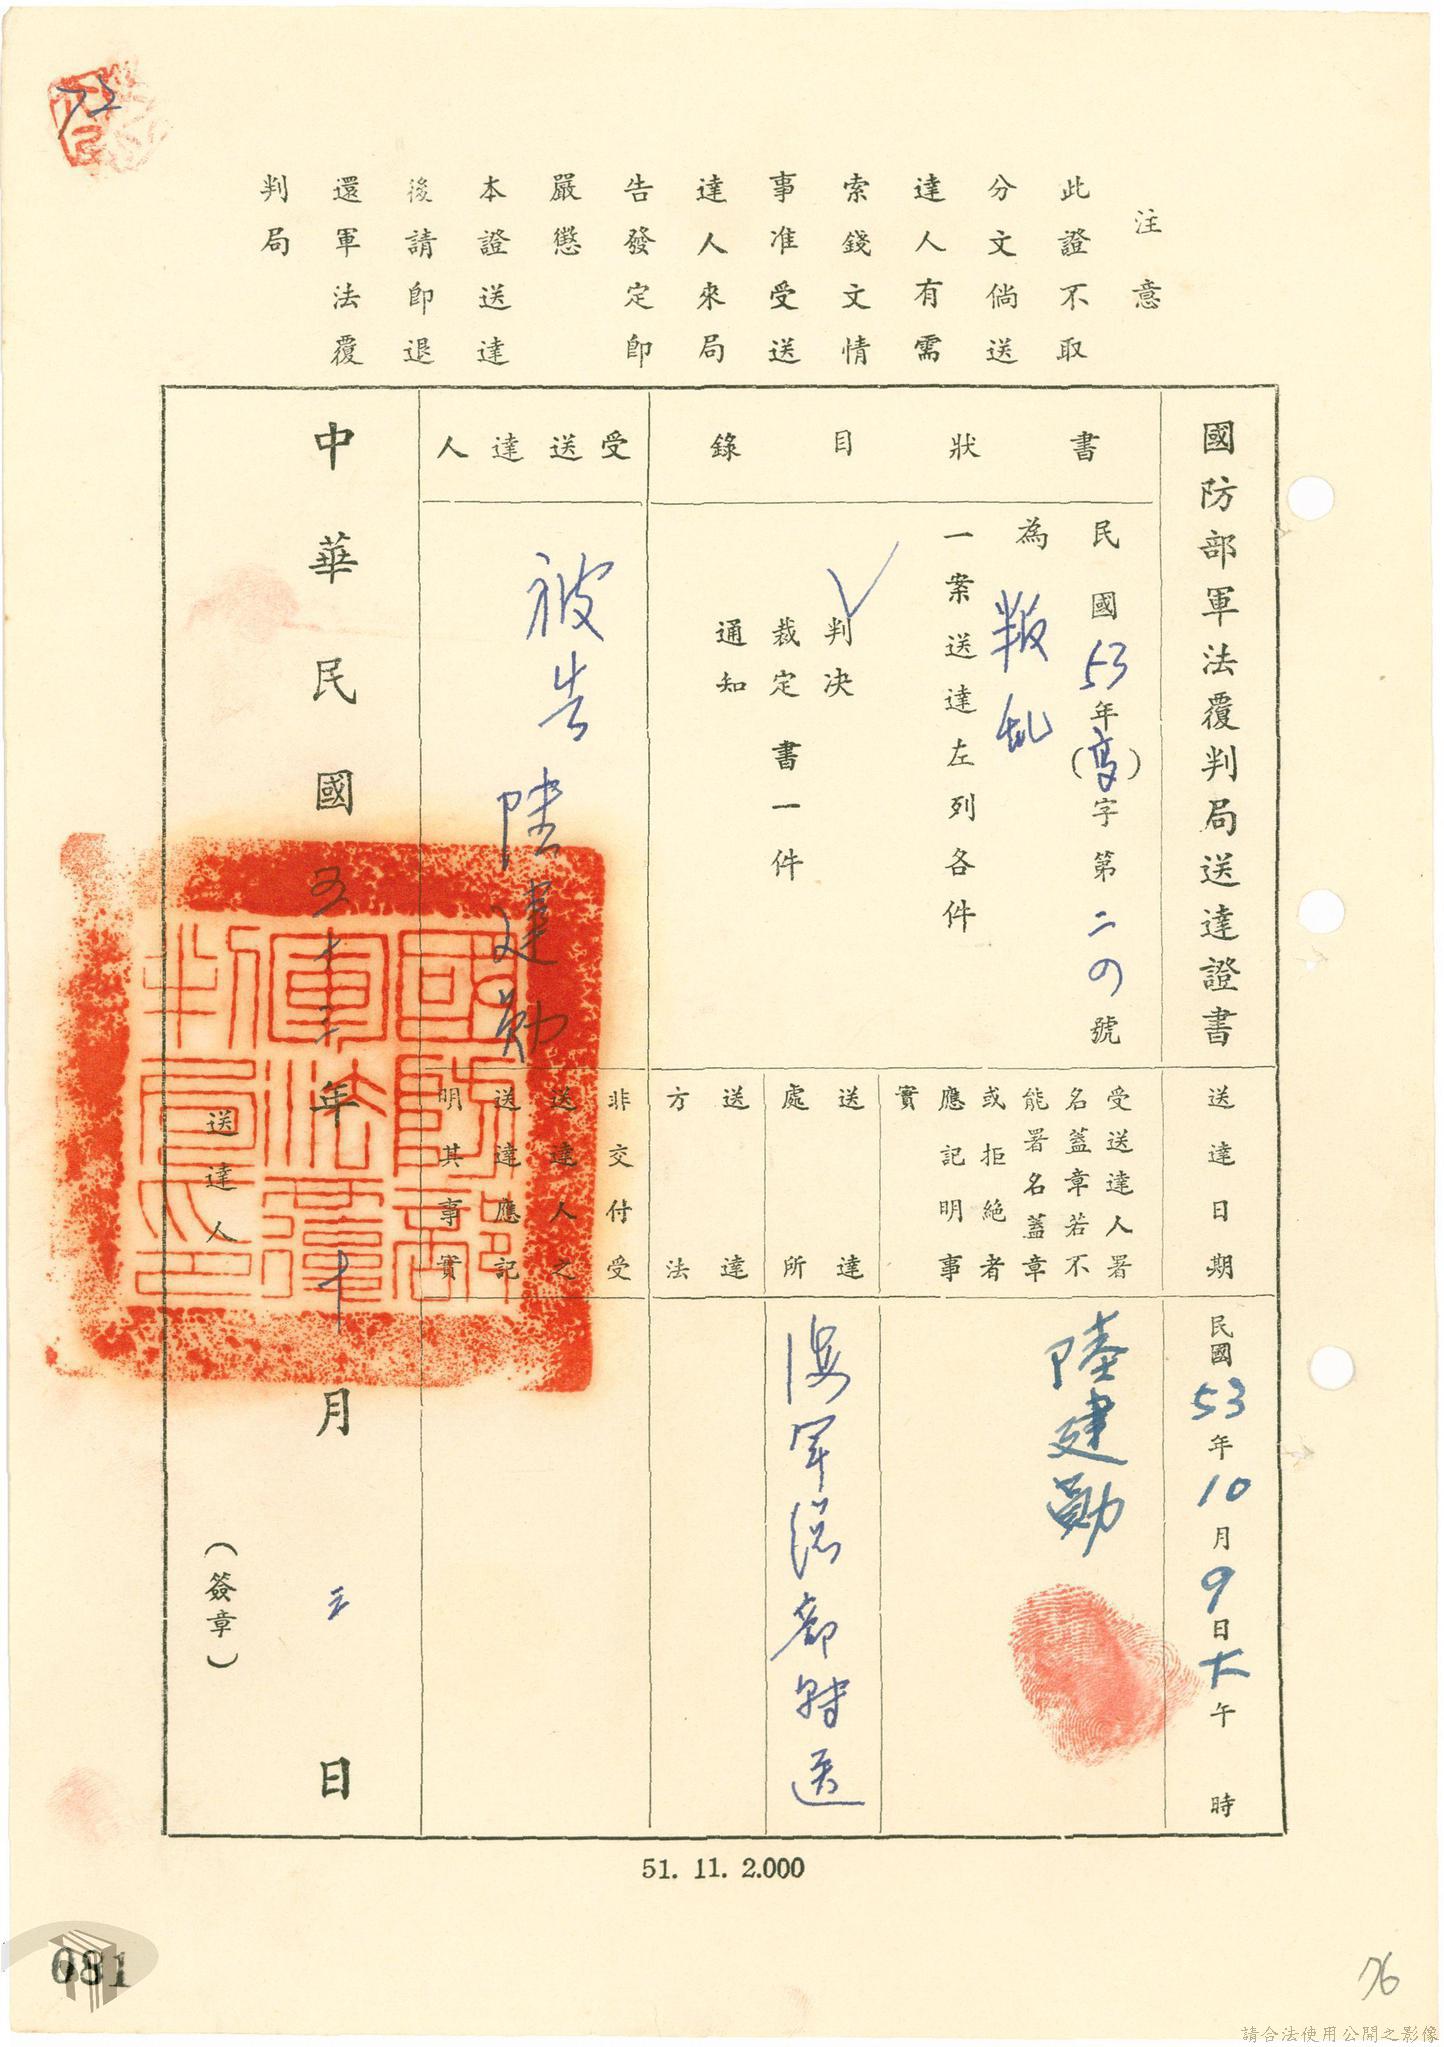 注意
此證不取
分文倘送
達人有需
索錢文情
事准受送
達人來局
告發定即
嚴懲
本證送達
後請即退
還軍法覆
判局
國防部軍法覆判局送達證書
書狀目錄
民國53年(高)字第二〇號
為叛乱
一案送達左列各件
判決
裁定書一件
通知
受送達人
被告陸建勛
送達日期
民國53年10月9日下午 時
受送達人署
名蓋章若不
能署名蓋章
或拒絕者
應記明事
實
陸建勛
送達
處所
海軍總部轉送
送達
方法
非交付受
送達人之
送達應記
明其事實
中華民國五十三年十月三日
送達人
(簽章)
51. 11. 2.000
081
76
請合法使用公開之影像